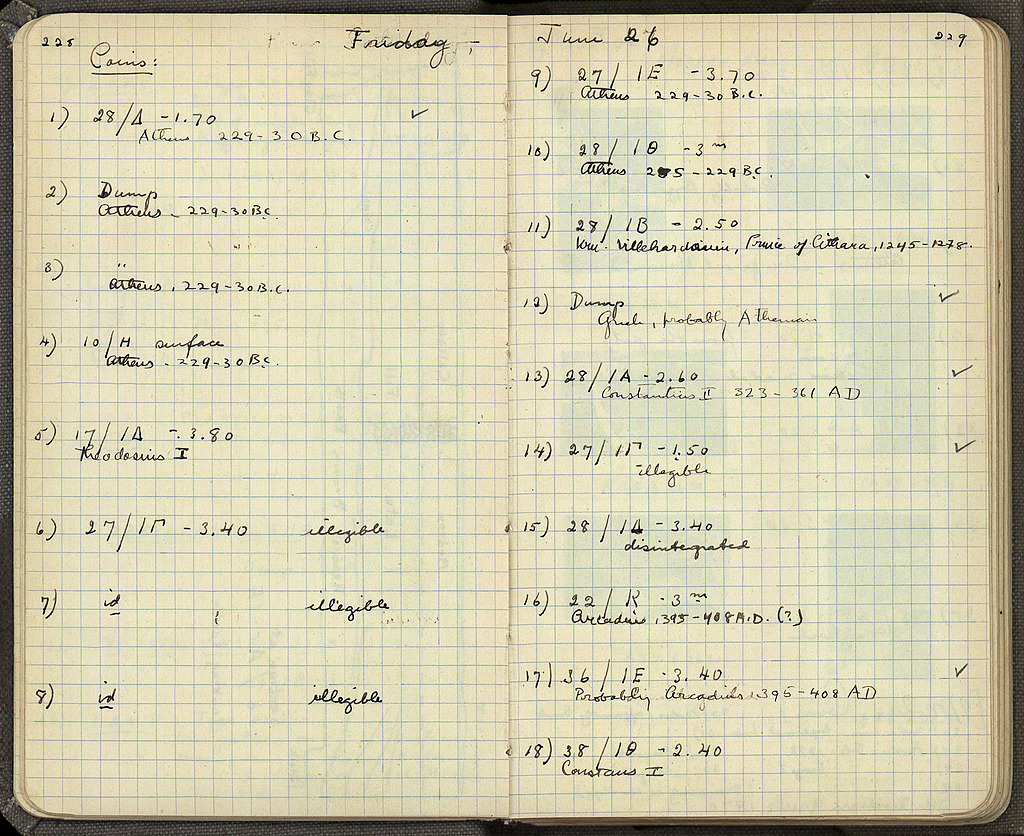 228
Friday,
Coins:
1) 28/Δ -1.70 ✓
Athens 229-30 B.C.
2) Dump
Athens - 229-30 B.C.
3) "
Athens, 229-30 B.C.
4) 10/H surface
Athens - 229-30 B.C.
5) 17/ΙΔ -3.80
Theodosius I
6) 27/ΙΓ -3.40 illegible
7) id illegible
8) id illegible
June 26
229
9) 27/ΙΕ -3.70
Athens 229-30 B.C.
10) 28/ΙΘ -3 m
Athens -229 B.C.
11) 28/ΙΒ -2.50
Villehardouin, Prince of 1245-1278.
12) Dump ✓
Greek, probably Athenian
13) 28/ΙΑ -2.60 ✓
Constantius II 323-361 AD
14) 27/ΙΓ -1.50 ✓
illegible
15) 28/ΙΔ -3.40
disintegrated
16) 22/Κ -3 m
Arcadius, 395-408 A.D. (?)
17) 36/ΙΕ -3.40 ✓
Probably Arcadius, 395-408 AD
18) 38/ΙΘ -2.40
Constans I